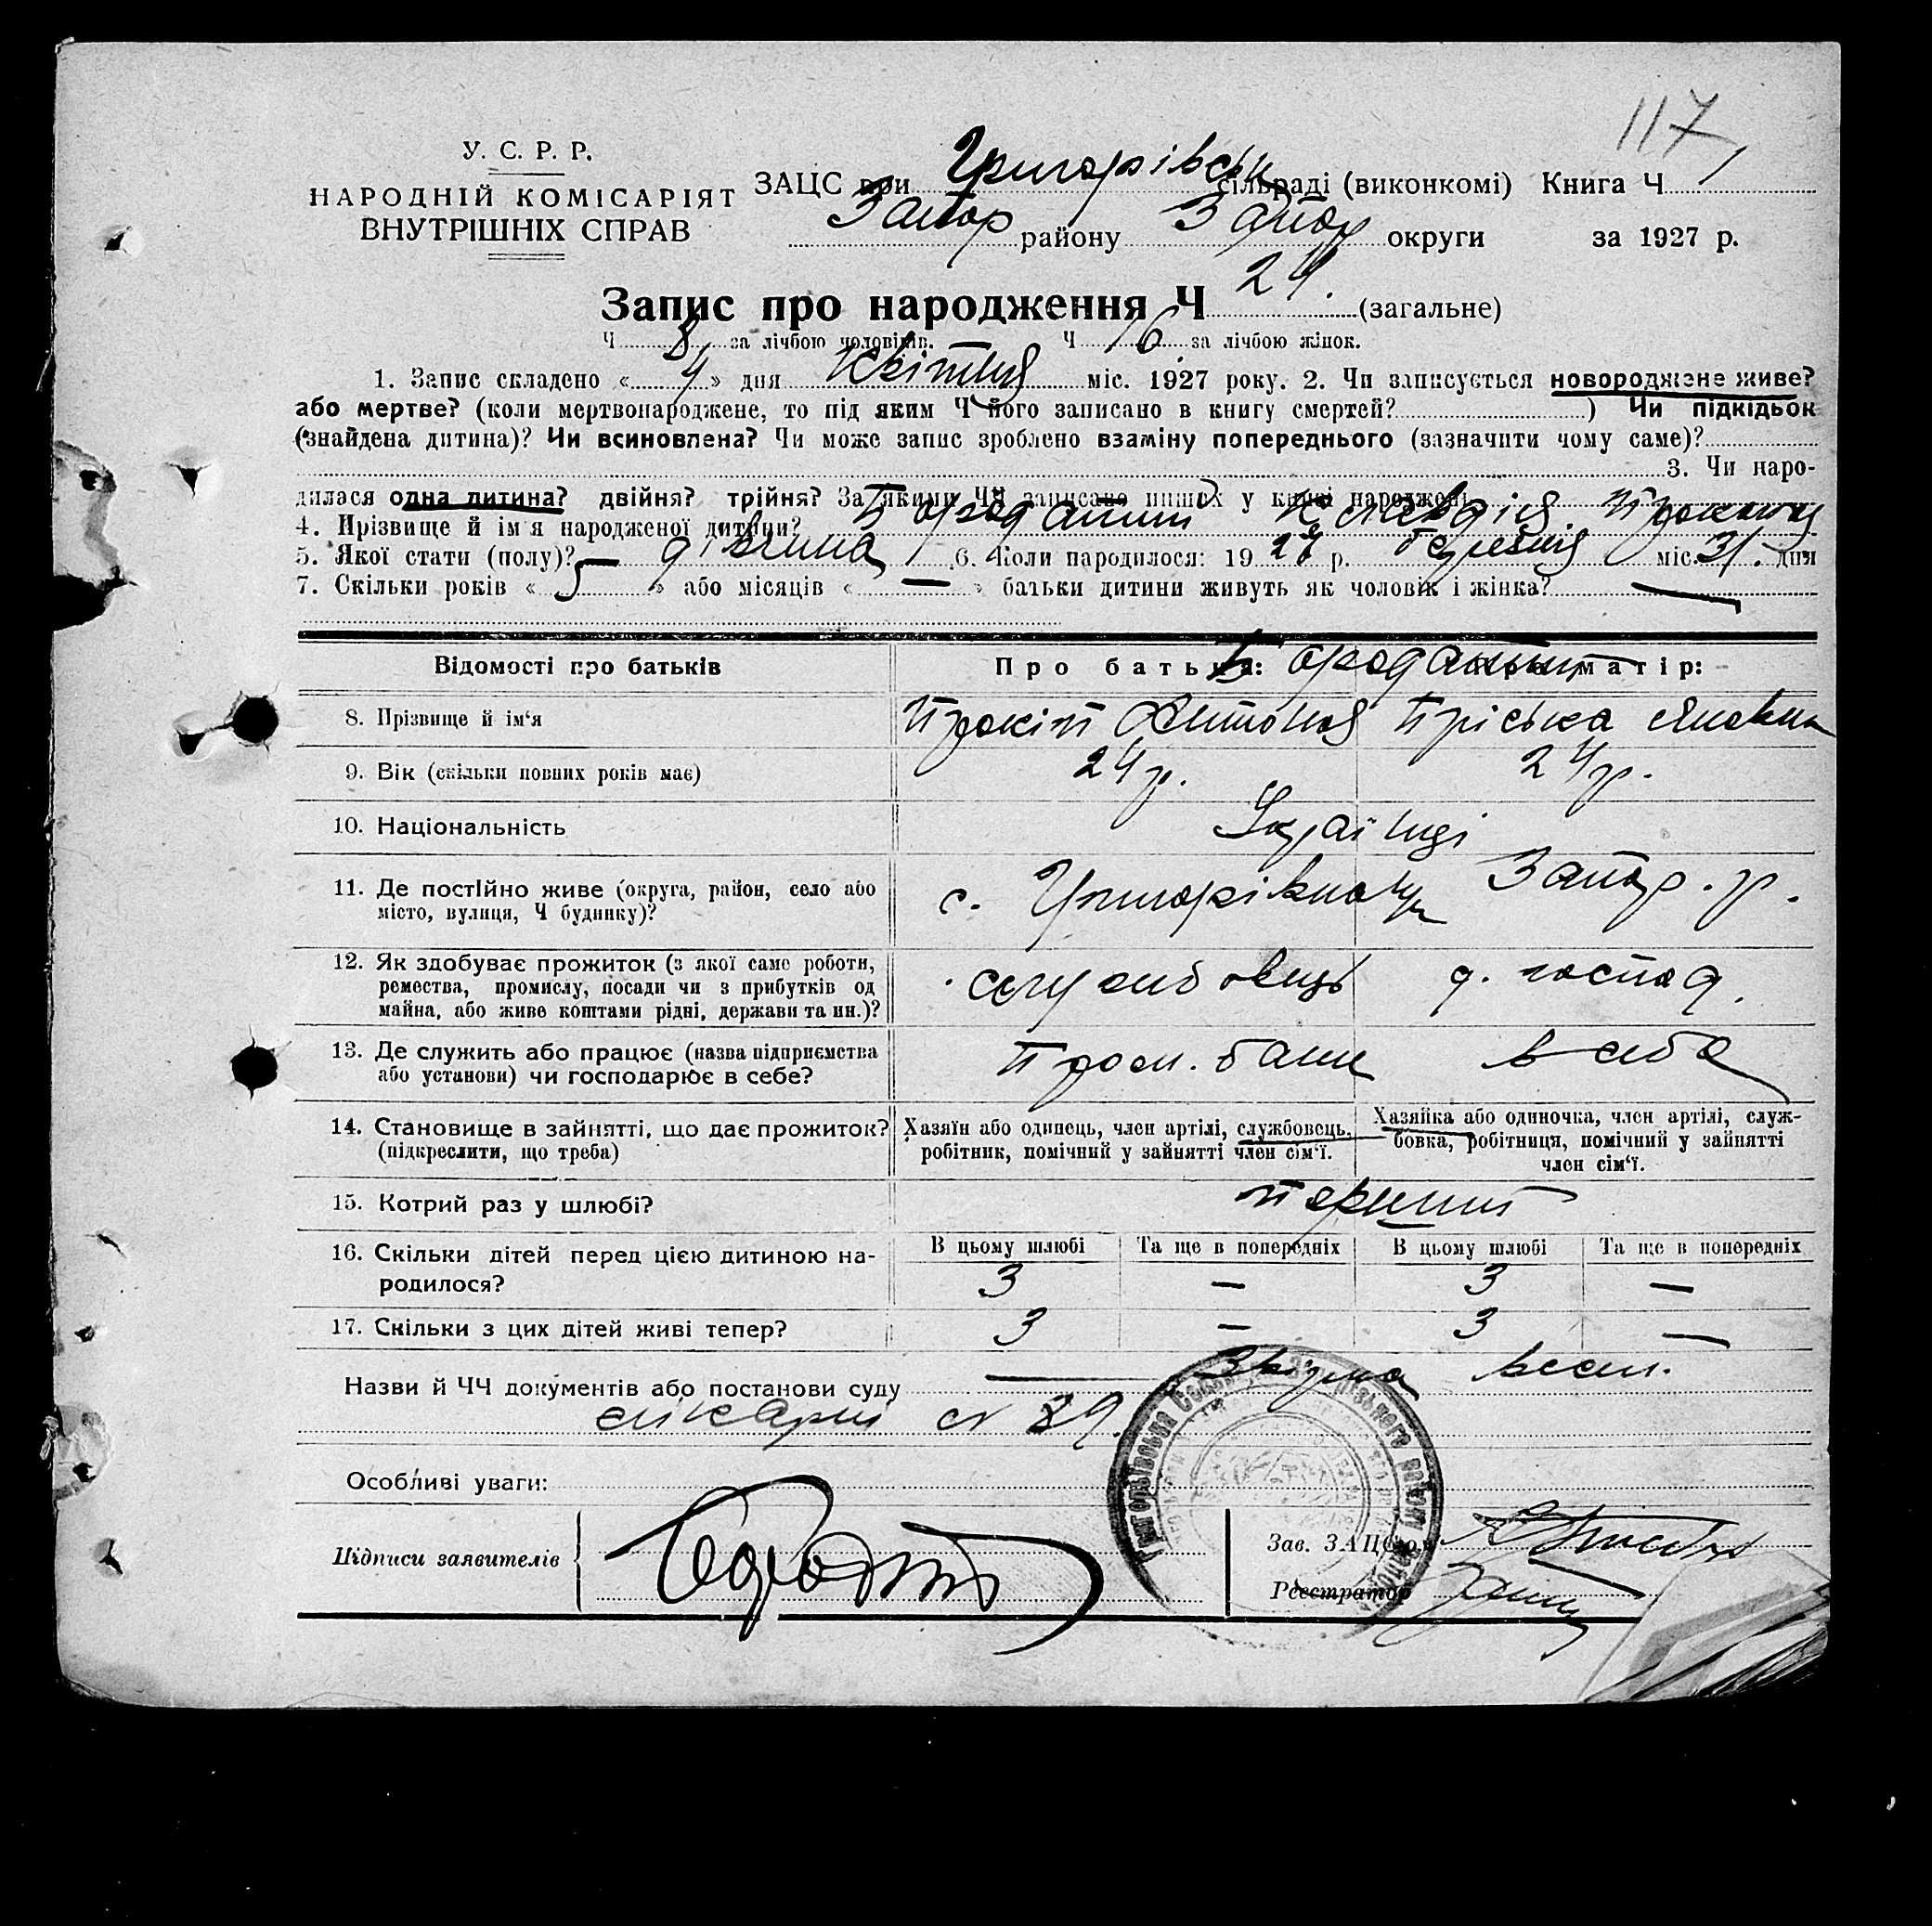 117
У. С. Р. Р.
НАРОДНІЙ КОМІСАРІЯТ
ВНУТРІШНІХ СПРАВ
ЗАЦС при Григорівськ сільраді (виконкомі) Книга Ч 1
Запор району Запор округи за 1927 р.
Запис про народження Ч 24. (загальне)
Ч 8 за лічбою чоловіків. Ч 16 за лічбою жінок.
1. Запис складено « 4 » дня Квітня міс. 1927 року. 2. Чи записується новороджене живе?
або мертве? (коли мертвонароджене, то під яким Ч його записано в книгу смертей? ) Чи підкідьок
(знайдена дитина)? Чи всиновлена? Чи може запис зроблено взаміну попереднього (зазначити чому саме)?
3. Чи наро-
дилася одна дитина? двійня? трійня? За якими ЧЧ записано инших у книзі народжень
4. Прізвище й ім'я народженої дитини? Клавдія Прокопія
5. Якої стати (полу)? — дівчина 6. Коли народилося: 1927 р. березня міс. 31. дня
7. Скільки років « 5 » або місяців « — » батьки дитини живуть як чоловік і жінка? —
Відомості про батьків
Про батька: Про матір:
8. Прізвище й ім'я Прокіп Антонів Пріська Яковна
9. Вік (скільки повних років має) 24 р. 24 р.
10. Національність Українці
11. Де постійно живе (округа, район, село або
місто, вулиця, Ч будинку)?
с. Запор. р.
12. Як здобуває прожиток (з якої саме роботи,
ремества, промислу, посади чи з прибутків од
майна, або живе коштами рідні, держави та ин.)?
службовець д. господ.
13. Де служить або працює (назва підприємства
або установи) чи господарює в себе?
Пром. банк в себе
14. Становище в зайнятті, що дає прожиток?
(підкреслити, що треба)
Хазяїн або одинець, член артілі, службовець,
робітник, помічний у зайнятті член сім'ї.
Хазяйка або одиночка, член артілі, служ-
бовка, робітниця, помічний у зайнятті
член сім'ї.
15. Котрий раз у шлюбі? перший
16. Скільки дітей перед цією дитиною на-
родилося?
В цьому шлюбі Та ще в попередніх В цьому шлюбі Та ще в попередніх
3 — 3 —
17. Скільки з цих дітей живі тепер? 3 — 3 —
Назви й ЧЧ документів або постанови суду —
лікарні 89.
Особливі уваги:
Підписи заявителів
Зав. ЗАЦС'ом
Реєстратор